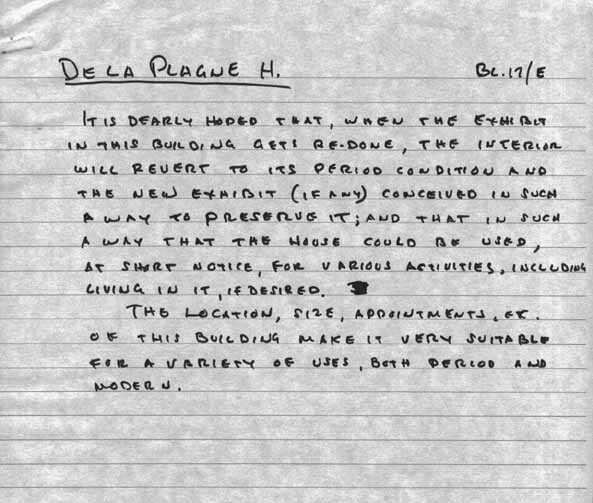 DE LA PLAGNE H. BL.17/E
IT IS DEARLY HOPED THAT, WHEN THE EXHIBIT
IN THIS BUILDING GETS RE-DONE, THE INTERIOR
WILL REVERT TO ITS PERIOD CONDITION AND
THE NEW EXHIBIT (IF ANY) CONCEIVED IN SUCH
A WAY TO PRESERVE IT; AND THAT IN SUCH
A WAY THAT THE HOUSE COULD BE USED,
AT SHORT NOTICE, FOR VARIOUS ACTIVITIES, INCLUDING
LIVING IN IT, IF DESIRED.
THE LOCATION, SIZE, APPOINTMENTS, ETC.
OF THIS BUILDING MAKE IT VERY SUITABLE
FOR A VARIETY OF USES, BOTH PERIOD AND
MODERN.